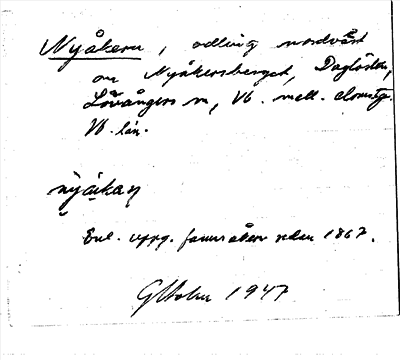 Nyåkern, odling nordväst
om Nyåkersberget, Daglösten,
Lövångers sn, Vb. mell. domsaga
Vb. län.
nyåkaɳ
Enl. uppg. fanns åkern redan 1867.
G Holm 1947